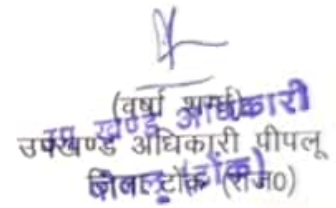 (वर्षा शर्मा)
उप खण्ड अधिकारी
उपखण्ड अधिकारी पीपलू
जिला टोंक (राज०)
(टोंक)